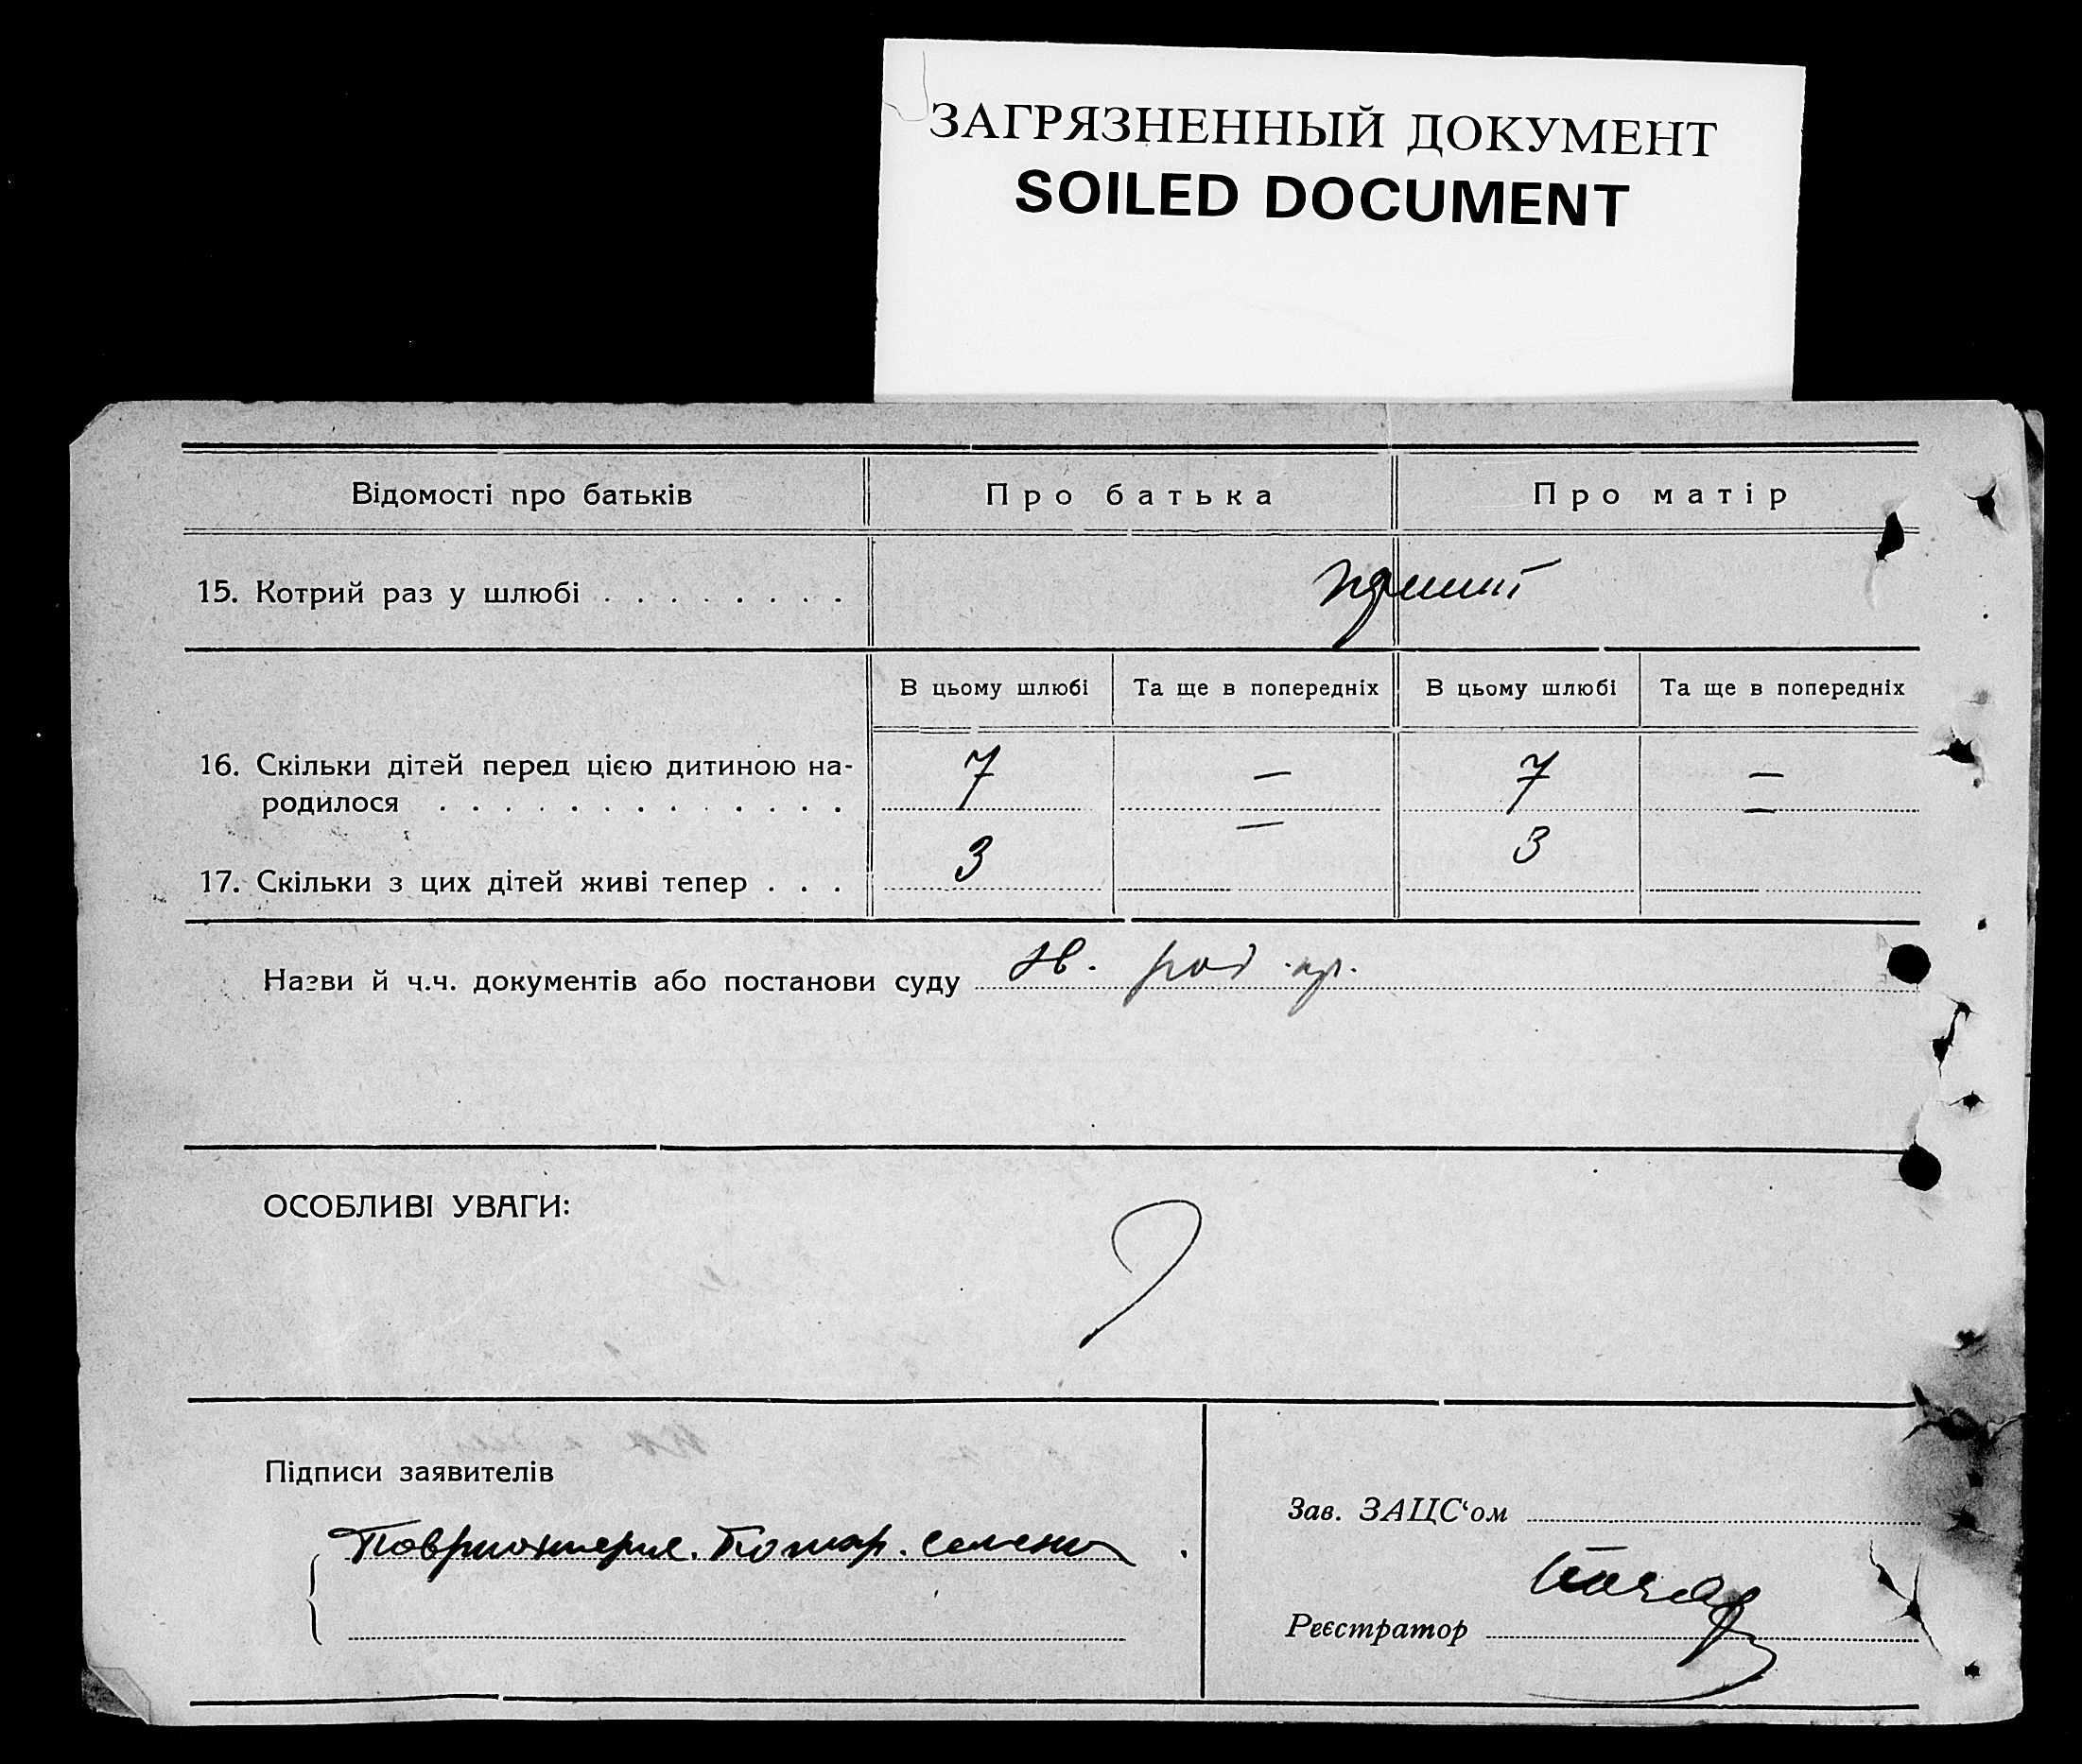 ЗАГРЯЗНЕННЫЙ ДОКУМЕНТ
SOILED DOCUMENT
Відомості про батьків Про батька Про матір
15. Котрий раз у шлюбі . . . . . . . .
В цьому шлюбі Та ще в попередніх В цьому шлюбі Та ще в попередніх
16. Скільки дітей перед цією дитиною на-
родилося . . . . . . . . . . . . . 7 — 7 —
17. Скільки з цих дітей живі тепер . . . 3 — 3 —
Назви й ч.ч. документів або постанови суду
ОСОБЛИВІ УВАГИ:
Підписи заявителів
Зав. ЗАЦС‘ом
Реєстратор